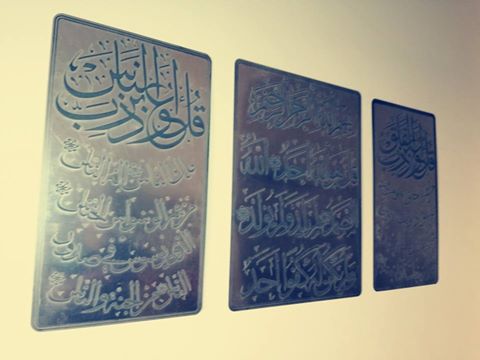 قل أعوذ برب الفلق
بسم الله الرحمن الرحيم
قل هو الله أحد الله
الصمد لم يلد ولم يولد
ولم يكن له كفوا أحد
قل أعوذ برب الناس
ملك الناس إله الناس
من شر الوسواس الخناس
الذي يوسوس في صدور
الناس من الجنة والناس